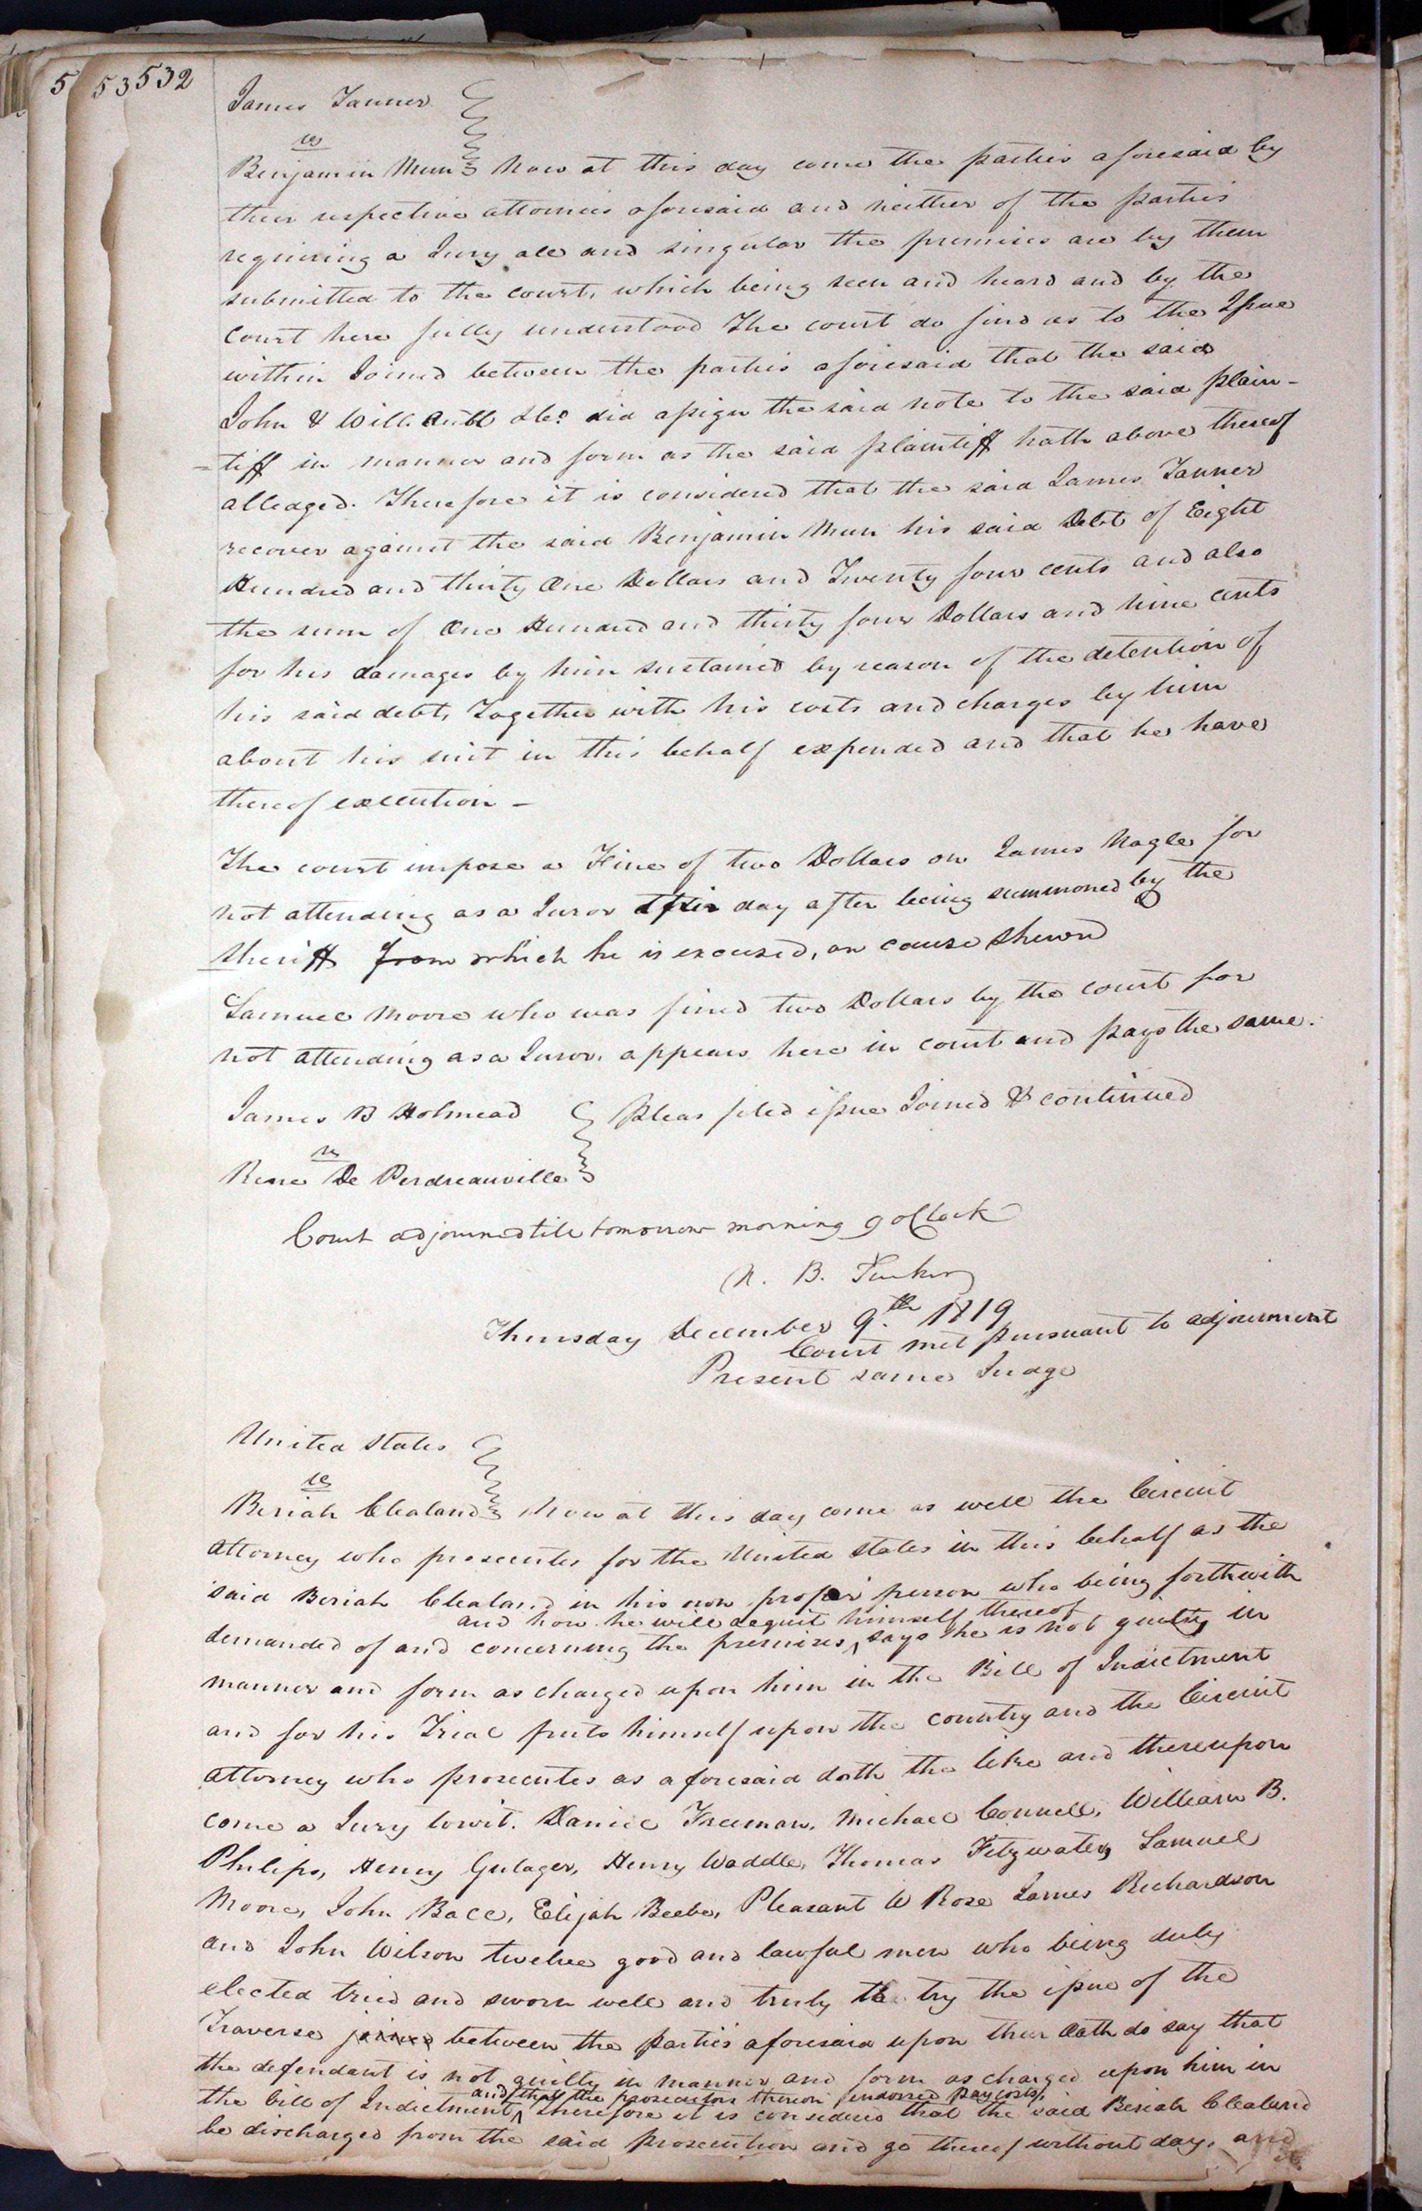 5 53 532
James Tanner
vs
Benjamin Mun Now at this day come the parties aforesaid by
their respective attornies aforesaid and neither of the parties
requiring a Jury all and singular the premises are by them
submitted to the court, which being seen and heard and by the
court here fully understood The court do find as to the Issue
within Joined between the parties aforesaid that the said
John & Will. &c. did assign the said note to the said plain-
=tiff in manner and form as the said plaintiff hath above thereof
alledged. Therefore it is considered that the said James Tanner
recover against the said Benjamin Mun his said Debt of Eight
Hundred and thirty One Dollars and Twenty four cents and also
the sum of One Hundred and thirty four Dollars and nine cents
for his damages by him sustained by reason of the detention of
his said debt, Together with his costs and charges by him
about his suit in this behalf expended and that he have
thereof execution -
The court impose a Fine of two Dollars on James Nagle for
not attending as a Juror this day after being summoned by the
Sheriff from which he is excused, on cause shewn
Samuel Moore who was fined two Dollars by the court for
not attending as a Juror, appears here in court and pays the same.
James B Holmead Pleas filed issue Joined & continued
vs
Rene De Perdreauville
Court adjourned till tomorrow morning 9 oClock
N. B. Tucker
Thursday December 9th 1819
Court met pursuant to adjournment
Present same Judge
United States
vs
Beriah Cleland Now at this day come as well the Circuit
attorney who prosecutes for the United States in this behalf as the
said Beriah Cleland in his own proper person who being forthwith
and how he will acquit himself thereof
demanded of and concerning the premises ^ says he is not guilty in
manner and form as charged upon him in the Bill of Indictment
and for his Trial puts himself upon the country and the Circuit
attorney who prosecutes as aforesaid doth the like and thereupon
come a Jury towit. Daniel Freeman, Michael Connell, William B.
Philips, Henry Gulager, Henry Waddle, Thomas Fitzwater, Samuel
Moore, John Ball, Elijah Beebe, Pleasant W Rose James Richardson
and John Wilson twelve good and lawful men who being duly
elected tried and sworn well and truly to try the issue of the
Traverse joined between the parties aforesaid upon their Oath do say that
the defendant is not guilty in manner and form as charged upon him in
and that the prosecutors thereon endorsed pay costs,
the bill of Indictment ^ therefore it is considered that the said Beriah Cleland
be discharged from the said prosecution and go thereof without day, and